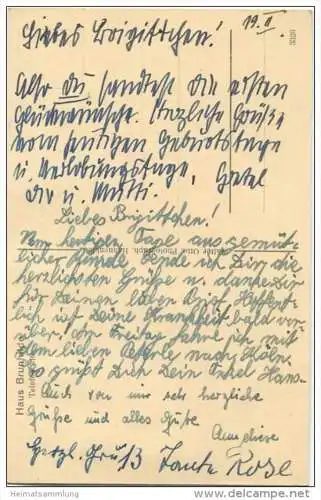 19. II.
Liebes Brigittchen!
Also du sandtest die ersten
Glückwünsche. Herzliche Grüße
vom heutigen Geburtstage
u. Verlobungstage, Gretel
dir u. Mutti.
Liebes Brigittchen!
Vom heutigen Tage aus gemüt-
licher Runde sende ich Dir die
herzlichsten Grüße u. danke Dir
für Deinen lieben Brief. Hoffent-
lich ist Deine Krankheit bald vor-
über. Am Freitag fahre ich mit
dem lieben Peterle nach Köln.
Es grüßt Dich Dein Onkel Hans
Auch von mir sehr herzliche
Grüße und alles Gute
Anneliese
Herzl. Gruß Tante Rose
Haus Brun
Telef
3526
Heimatsammlung
www.ansichtskartenversand.com